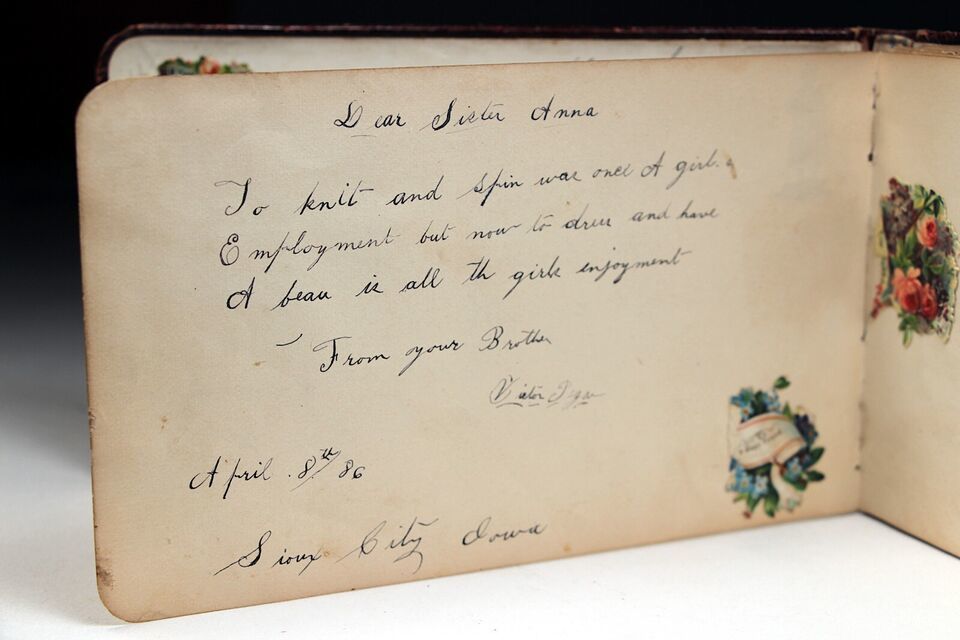 Dear Sister Anna
To knit and spin was once A girls
Employment but now to dress and have
A beau is all th girls enjoyment
From your Brother
Victor
April . 8th 86
Sioux City Iowa